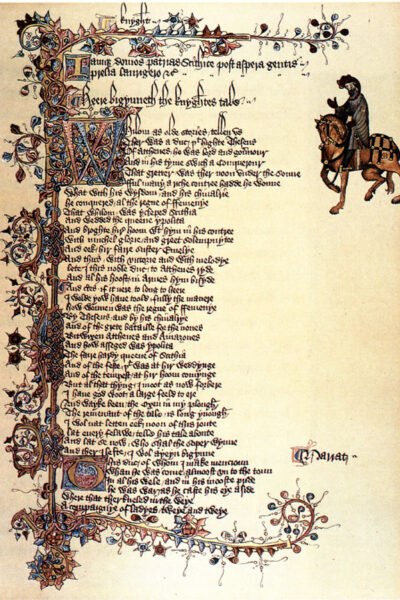 knyght
Iamq; domos patrias Scithice post aspera gentis
prelia laurigero &c
Heere bigynneth the knyghtes tale
Whilom as olde stories tellen us
Ther was a duc þt highte Theseus
Of Atthenes he was lord and gouernour
And in his tyme swich a conquerour
That gretter was ther noon under the sonne
fful many a riche contree hadde he wonne
What with his wysdom and his chiualrie
he conquered al the regne of ffemenye
That whilom was ycleped Scithia
And wedded the queene ypolita
And broghte hir hoom wt hym in his contree
With muchel glorie and greet solempnytee
And eek hir faire suster Emelye
And thus with victorie and with melodye
lete I this noble duc to Atthenes ryde
And al his hoost in Armes hym bisyde
And certes if it nere to long to heere
I wolde yow haue toold fully the manere
how wonnen was the regne of ffemenye
By Theseus and by his chiualrye
And of the grete bataille for the nones
Bitwixen Atthenes and Amazones
And how asseged was ypolita
The faire hardy queene of Scithia
And of the feste þt was at hir weddynge
And of the tempest at hir hoom comynge
But al that thyng I moot as now forbere
I haue god woot a large feeld to ere
And wayke been the oxen in my plough
The remenant of the tale is long ynough
I wol nat letten eek noon of this route
lat euery felawe telle his tale aboute
And lat se now who shal the soper wynne
And ther I lefte I wol ayeyn bigynne
This duc of whom I make mencioun
Whan he was come almoost un to the toun
In al his wele and in his mooste pride
he was war as he caste his eye aside
Where that ther kneled in the weye
A compaignye of ladyes tweye and tweye
Narrat